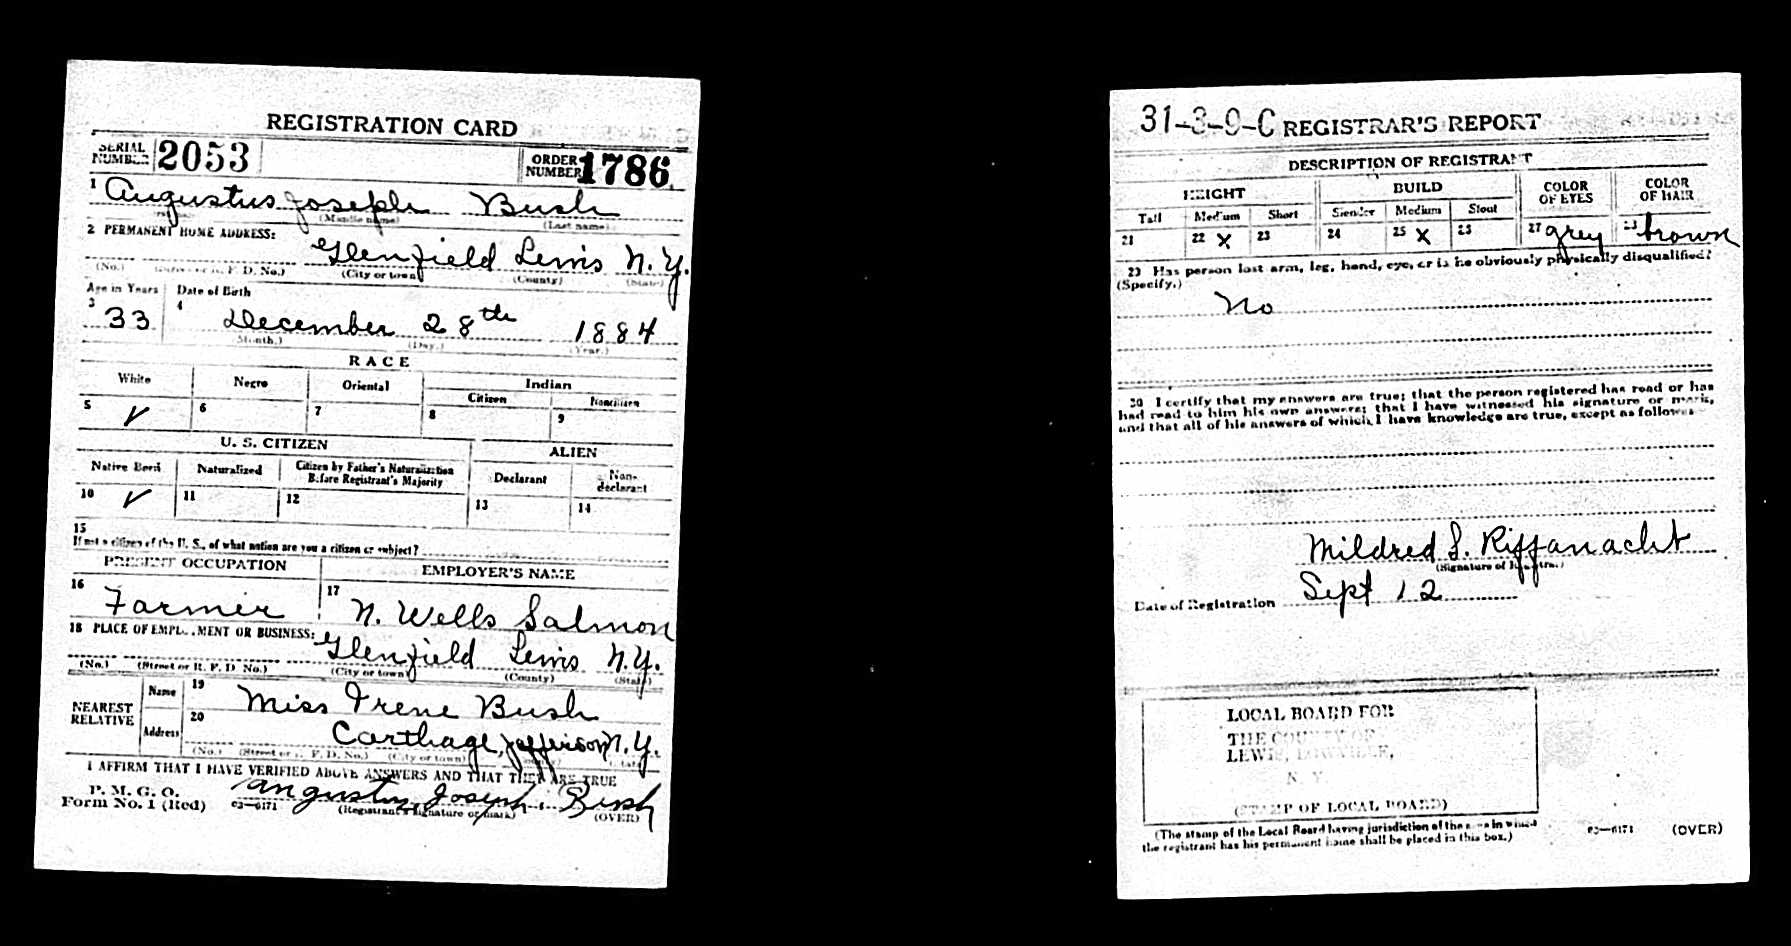 REGISTRATION CARD
SERIAL NUMBER 2053 ORDER NUMBER 1786
1 Augustus Joseph Bush
(Middle name) (Last name)
2 PERMANENT HOME ADDRESS: Glenfield Lewis N.Y.
(No.) (Street or R. F. D. No.) (City or town) (County) (State)
Age in Years Date of Birth
3 33 4 December 28th 1884
(Month.) (Day.) (Year.)
RACE
White Negro Oriental Indian
Citizen Noncitizen
5 ✓ 6 7 8 9
U. S. CITIZEN ALIEN
Native Born Naturalized Citizen by Father's Naturalization Before Registrant's Majority Declarant Non-declarant
10 ✓ 11 12 13 14
15
If not a citizen of the U. S., of what nation are you a citizen or subject?
PRESENT OCCUPATION EMPLOYER'S NAME
16 Farmer 17 N. Wells Salmon
18 PLACE OF EMPLOYMENT OR BUSINESS: Glenfield Lewis N.Y.
(No.) (Street or R. F. D. No.) (City or town) (County) (State)
NEAREST RELATIVE Name 19 Miss Irene Bush
Address 20 Carthage, Jefferson N.Y.
(No.) (Street or R. F. D. No.) (City or town) (County) (State)
I AFFIRM THAT I HAVE VERIFIED ABOVE ANSWERS AND THAT THEY ARE TRUE
P. M. G. O.
Form No. 1 (Red) 03—6171 Augustus Joseph Bush
(Registrant's signature or mark) (OVER)
31-3-9-C REGISTRAR'S REPORT
DESCRIPTION OF REGISTRANT
HEIGHT BUILD COLOR OF EYES COLOR OF HAIR
Tall Medium Short Slender Medium Stout
21 22 X 23 24 25 X 26 27 grey 28 brown
29 Has person lost arm, leg, hand, eye, or is he obviously physically disqualified?
(Specify.)
No
30 I certify that my answers are true; that the person registered has read or has
had read to him his own answers; that I have witnessed his signature or mark,
and that all of his answers of which I have knowledge are true, except as follows
Mildred S. Riffanacht
(Signature of Registrar)
Date of Registration Sept 12
LOCAL BOARD FOR
THE COUNTY OF
LEWIS, LOWVILLE,
N. Y.
(STAMP OF LOCAL BOARD)
(The stamp of the Local Board having jurisdiction of the area in which
the registrant has his permanent home shall be placed in this box.)
03—6171 (OVER)